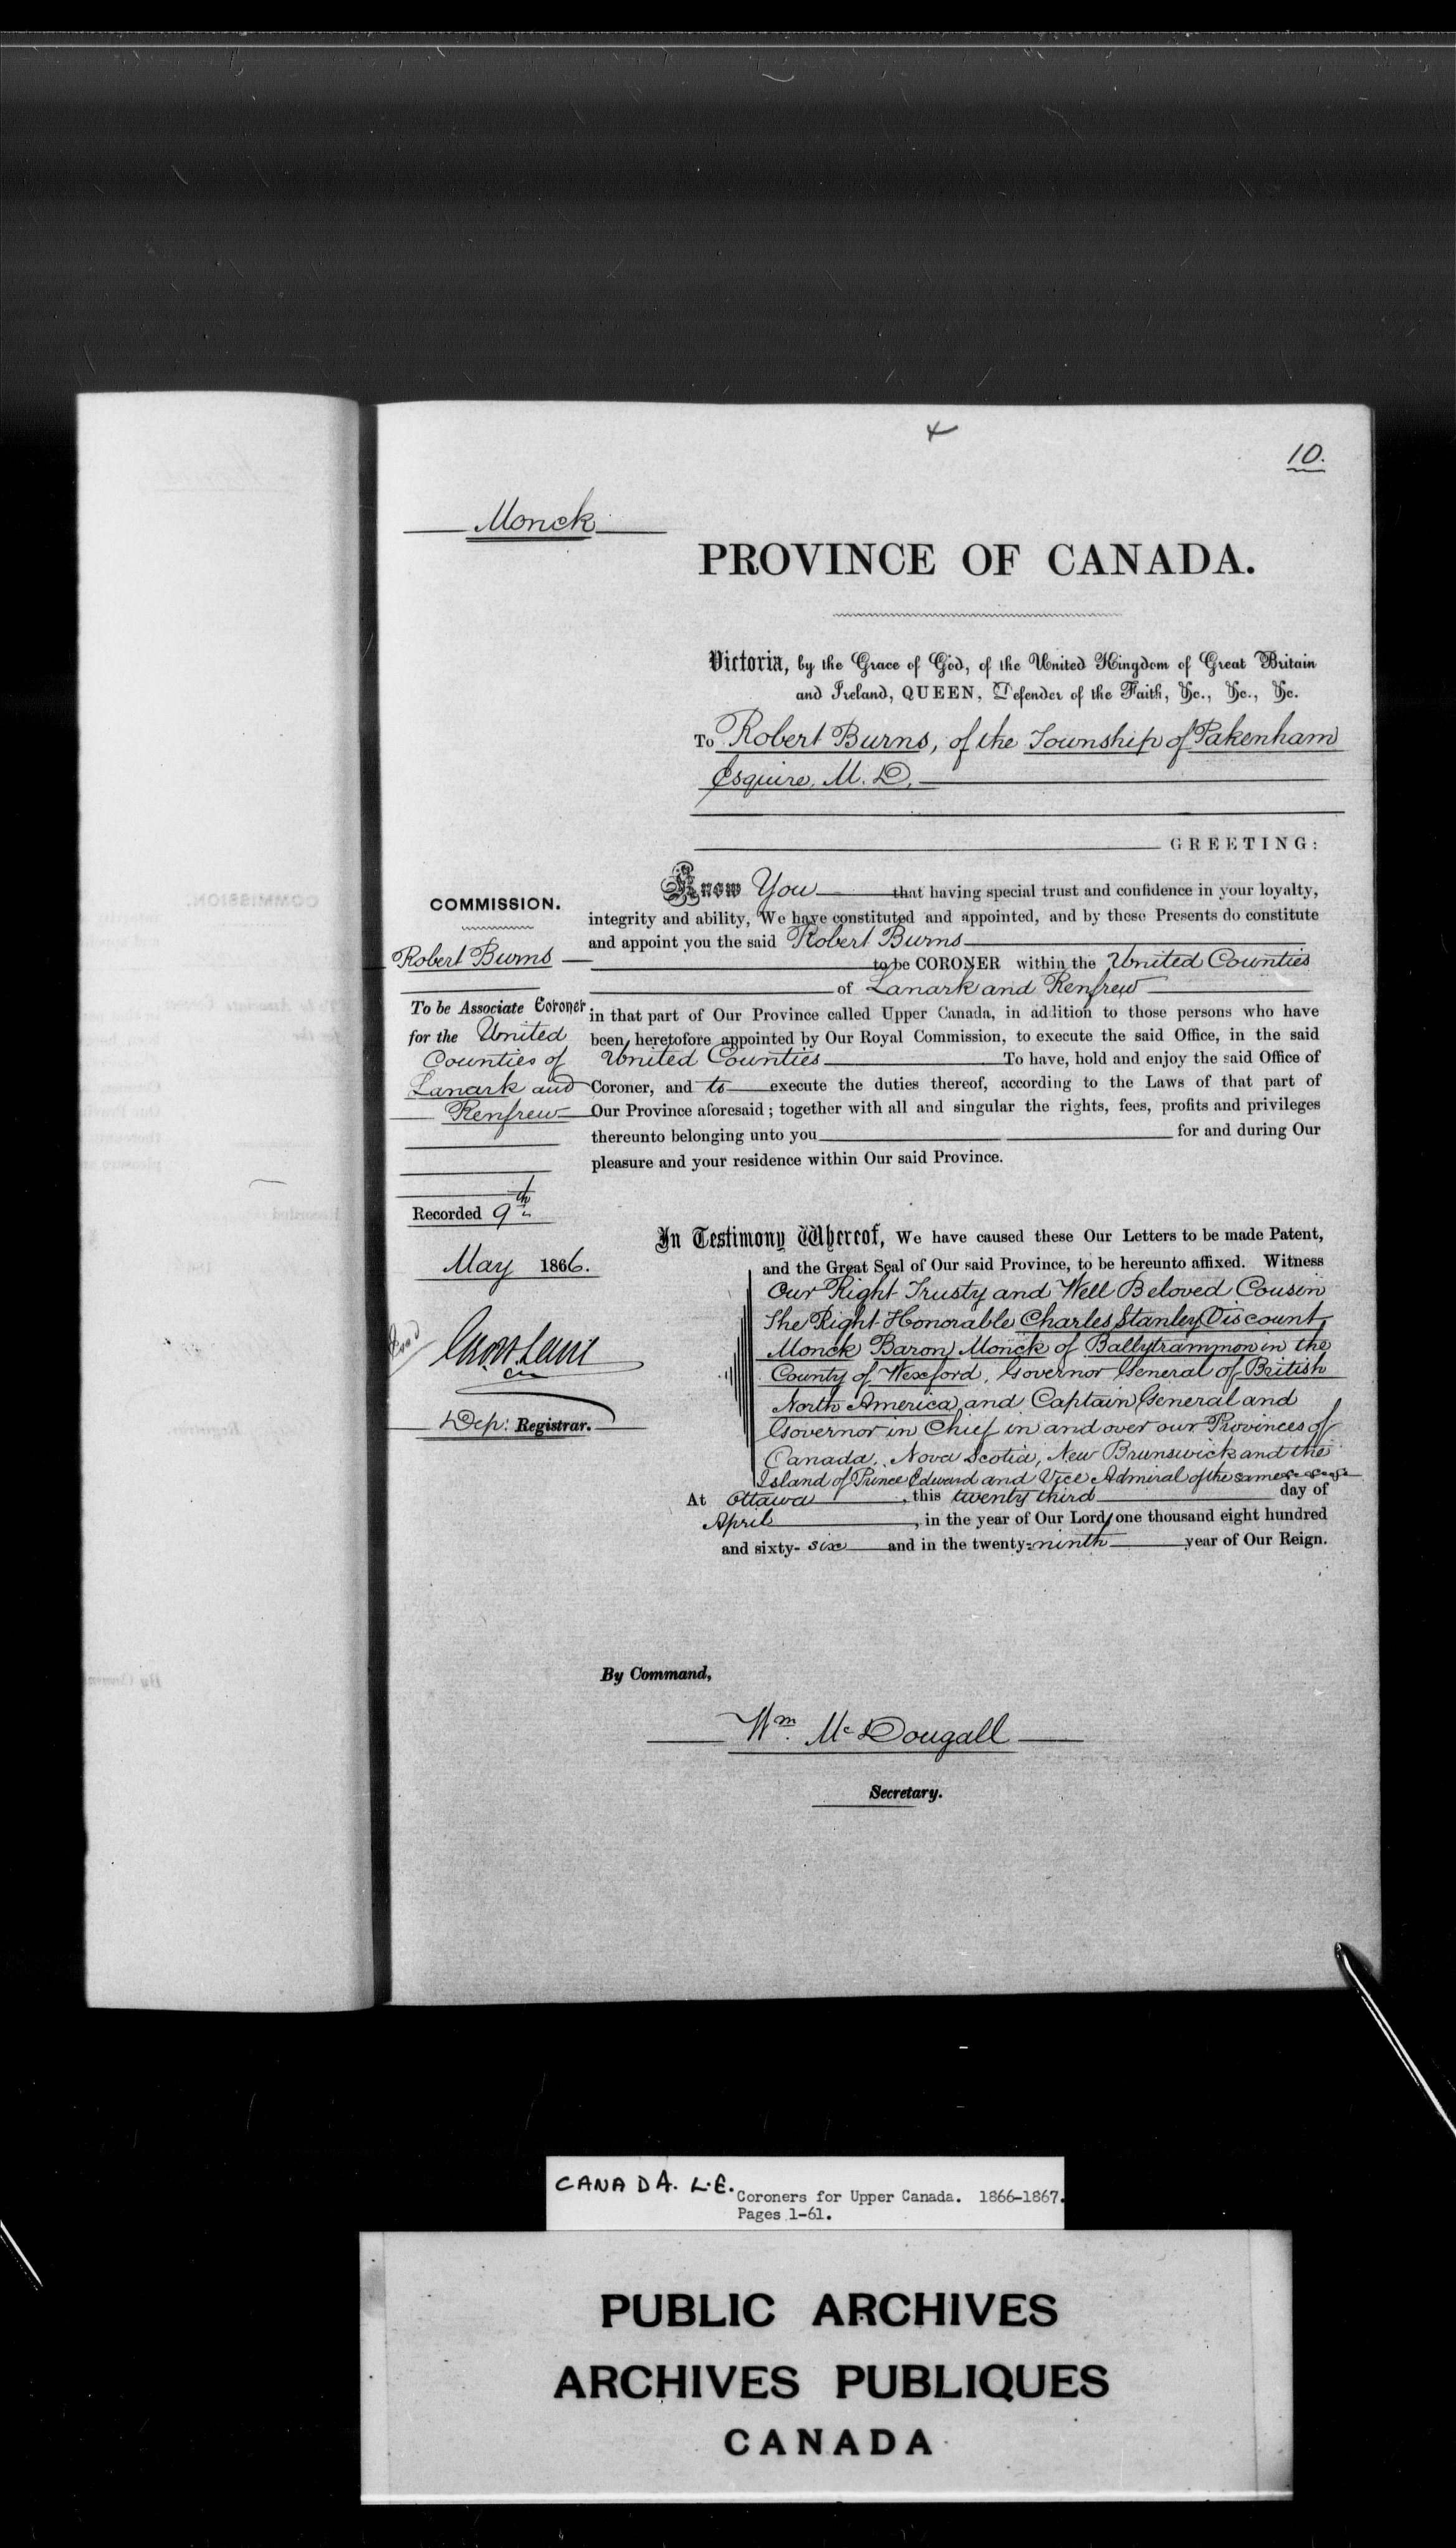 10.
Monck
PROVINCE OF CANADA.
Victoria, by the Grace of God, of the United Kingdom of Great Britain
and Ireland, QUEEN, Defender of the Faith, &c., &c., &c.
To Robert Burns, of the Township of Pakenham
Esquire, M. D.
GREETING:
COMMISSION.
Robert Burns
To be Associate Coroner
for the United
Counties of
Lanark and
Renfrew
Recorded 9th
May 1866.
Dep: Registrar.
Know You that having special trust and confidence in your loyalty,
integrity and ability, We have constituted and appointed, and by these Presents do constitute
and appoint you the said Robert Burns
to be CORONER within the United Counties
of Lanark and Renfrew
in that part of Our Province called Upper Canada, in addition to those persons who have
been heretofore appointed by Our Royal Commission, to execute the said Office, in the said
United Counties To have, hold and enjoy the said Office of
Coroner, and to execute the duties thereof, according to the Laws of that part of
Our Province aforesaid; together with all and singular the rights, fees, profits and privileges
thereunto belonging unto you for and during Our
pleasure and your residence within Our said Province.
In Testimony Whereof, We have caused these Our Letters to be made Patent,
and the Great Seal of Our said Province, to be hereunto affixed. Witness
Our Right Trusty and Well Beloved Cousin
The Right Honorable Charles Stanley Viscount
Monck Baron Monck of Ballytrammon in the
County of Wexford, Governor General of British
North America and Captain General and
Governor in Chief in and over our Provinces of
Canada, Nova Scotia, New Brunswick and the
Island of Prince Edward and Vice Admiral of the same &c &c &c
At Ottawa, this twenty third day of
April, in the year of Our Lord, one thousand eight hundred
and sixty-six and in the twenty-ninth year of Our Reign.
By Command,
Wm. McDougall
Secretary.
CANADA. L.E.
Coroners for Upper Canada. 1866-1867.
Pages 1-61.
PUBLIC ARCHIVES
ARCHIVES PUBLIQUES
CANADA